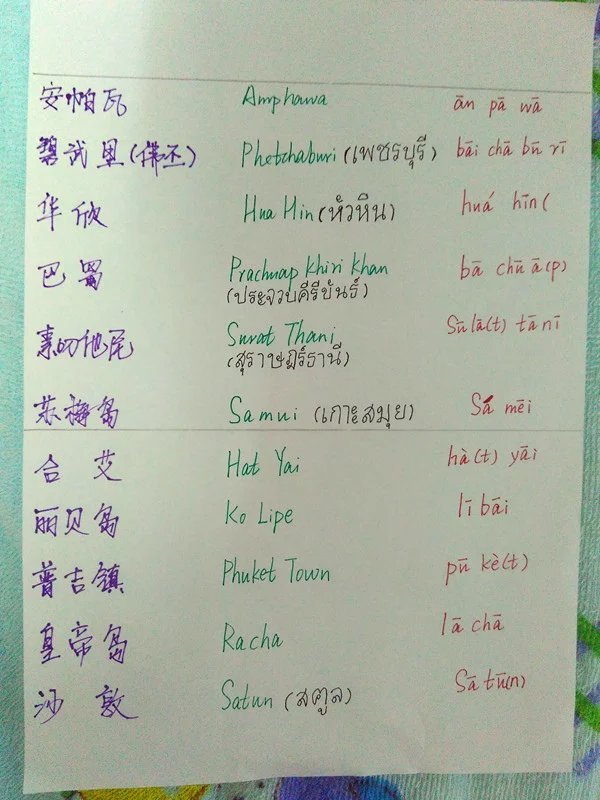 安帕瓦 Amphawa ān pā wā
碧武里(佛丕) Phetchaburi (เพชรบุรี) bāi chā bū rī
华欣 Hua Hin (หัวหิน) huá hīn(
巴蜀 Prachuap Khiri Khan bā chū ā(p)
(ประจวบคีรีขันธ์)
素叻他尼 Surat Thani Sū lā(t) tā nī
(สุราษฎร์ธานี)
苏梅岛 Samui (เกาะสมุย) Sā mēi
合艾 Hat Yai hà(t) yāi
丽贝岛 Ko Lipe lī bāi
普吉镇 Phuket Town pū kè(t)
皇帝岛 Racha lā chā
沙敦 Satun (สตูล) Sā tū(n)